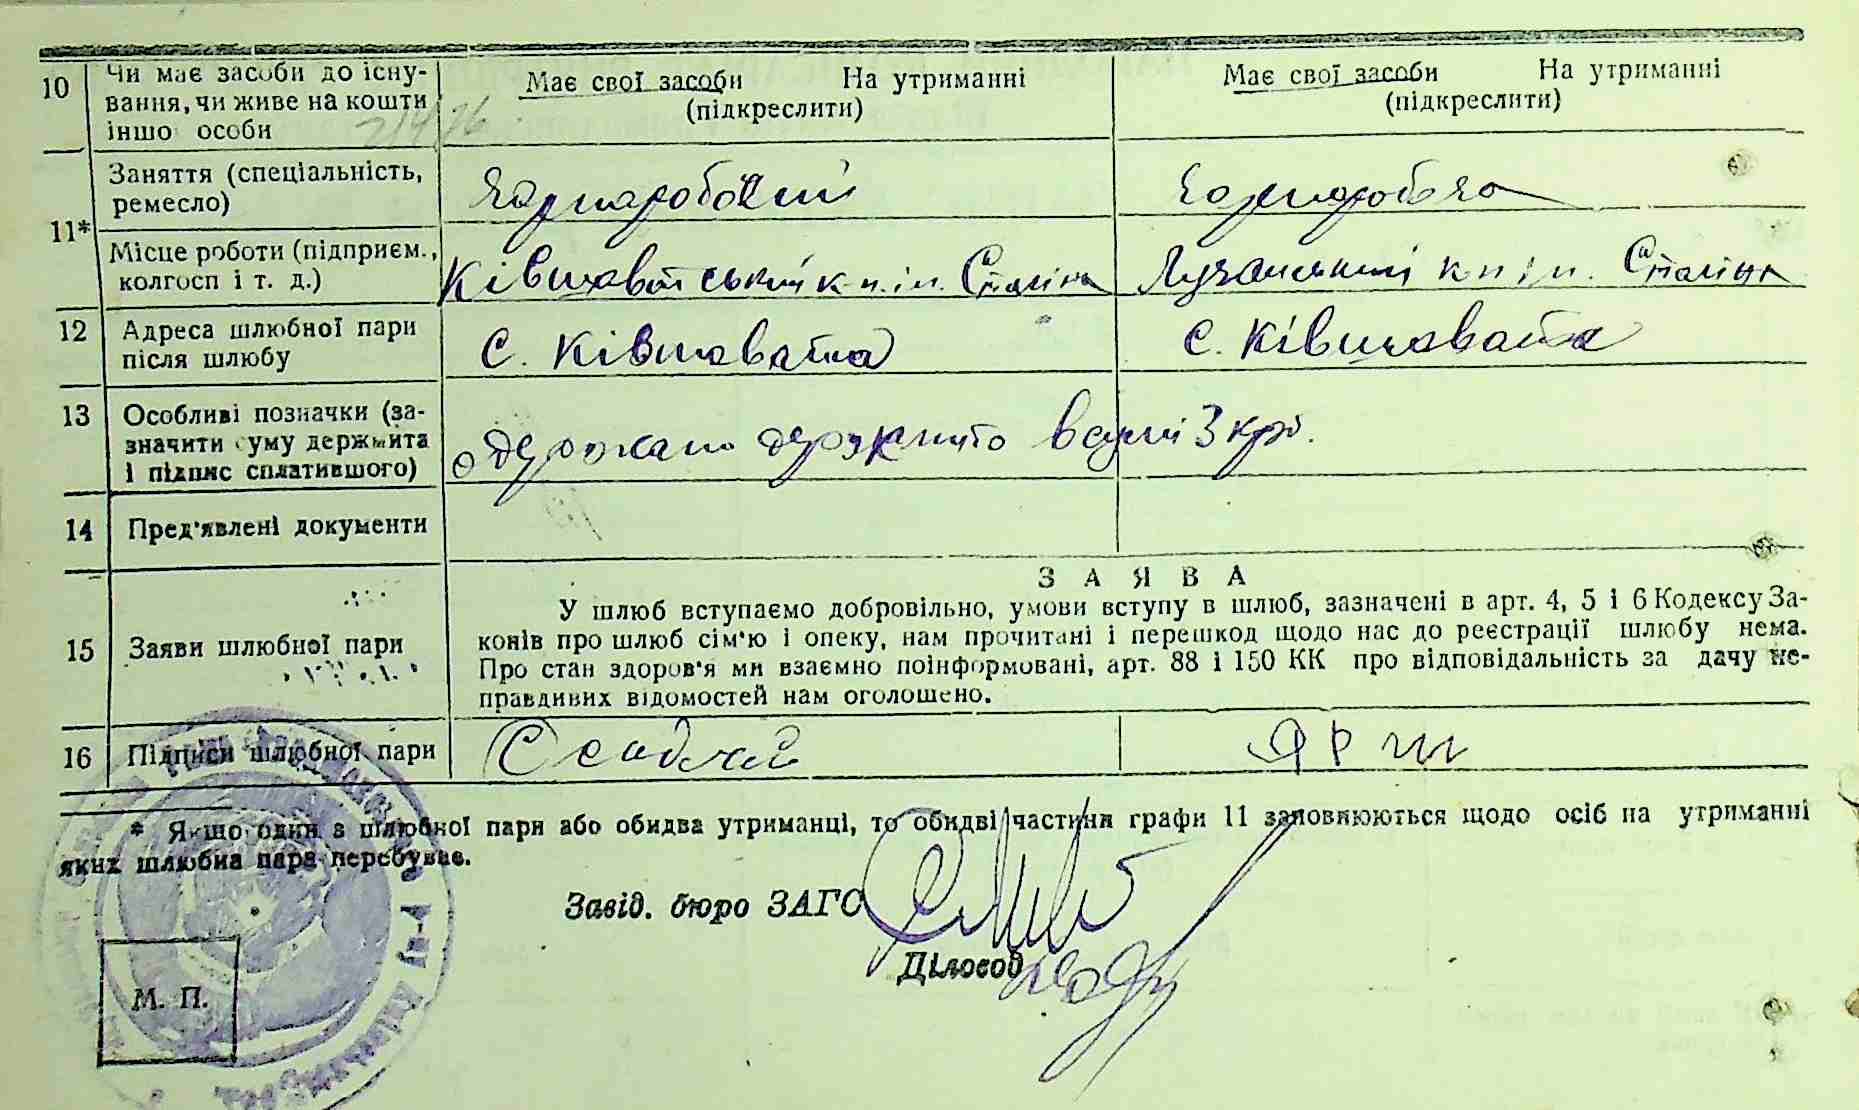 10 Чи має засоби до існу-
вання, чи живе на кошти
іншо особи
Має свої засоби На утриманні
(підкреслити)
Має свої засоби На утриманні
(підкреслити)
11* Заняття (спеціальність,
ремесло)
Чорноробочий
Чорноробоча
Місце роботи (підприєм.,
колгосп і т. д.)
Ківшоватський к-п. ім. Сталіна
Лучанський к-п ім. Сталіна
12 Адреса шлюбної пари
після шлюбу
С. Ківшовата
С. Ківшовата
13 Особливі позначки (за-
значити суму держмита
і підпис сплатившого)
одержано держмито в сумі 3 крб.
14 Пред'явлені документи
15 Заяви шлюбної пари
ЗАЯВА
У шлюб вступаємо добровільно, умови вступу в шлюб, зазначені в арт. 4, 5 і 6 Кодексу За-
конів про шлюб сім'ю і опеку, нам прочитані і перешкод щодо нас до реєстрації шлюбу нема.
Про стан здоров'я ми взаємно поінформовані, арт. 88 і 150 КК про відповідальність за дачу не-
правдивих відомостей нам оголошено.
16 Підписи шлюбної пари
* Якщо один з шлюбної пари або обидва утриманці, то обидві частини графи 11 заповнюються щодо осіб на утриманні
яких шлюбна пара перебуває.
Завід. бюро ЗАГС
Діловод
М. П.